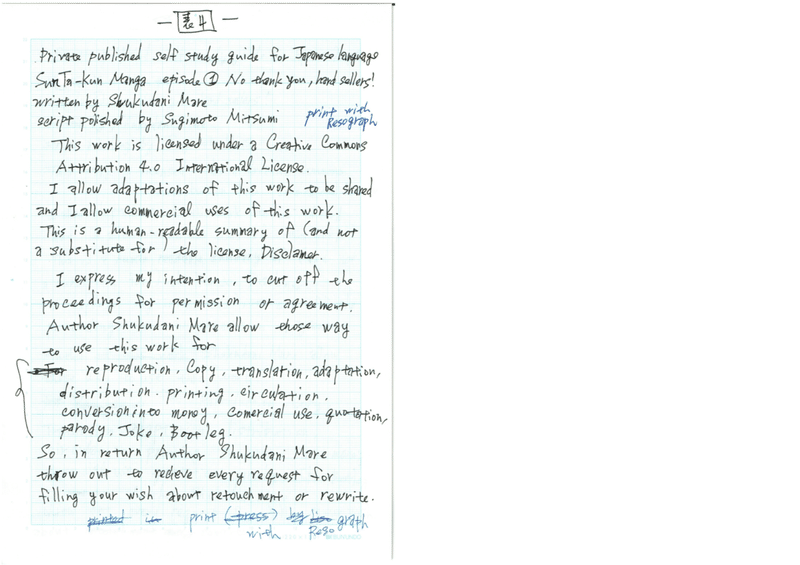 — 表4 —
Private published self study guide for Japanese language
SunTa-Kun Manga episode ① No thank you, hard sellers!
written by Shukudani Mare
script polished by Sugimoto Mitsumi
print with
Resograph
This work is licensed under a Creative Commons
Attribution 4.0 International License.
I allow adaptations of this work to be shared
and I allow commercial uses of this work.
This is a human-readable summary of (and not
a substitute for) the license, Disclamer.
I express my intention, to cut off the
proceedings for permission or agreement.
Author Shukudani Mare allow those way
to use this work for
reproduction, Copy, translation, adaptation,
distribution, printing, circulation,
conversion into money, comercial use, quotation,
parody, Joke, Bootleg.
So, in return Author Shukudani Mare
throw out to recieve every request for
filling your wish about retouchment or rewrite.
printed in print (press) by graph
with Reso